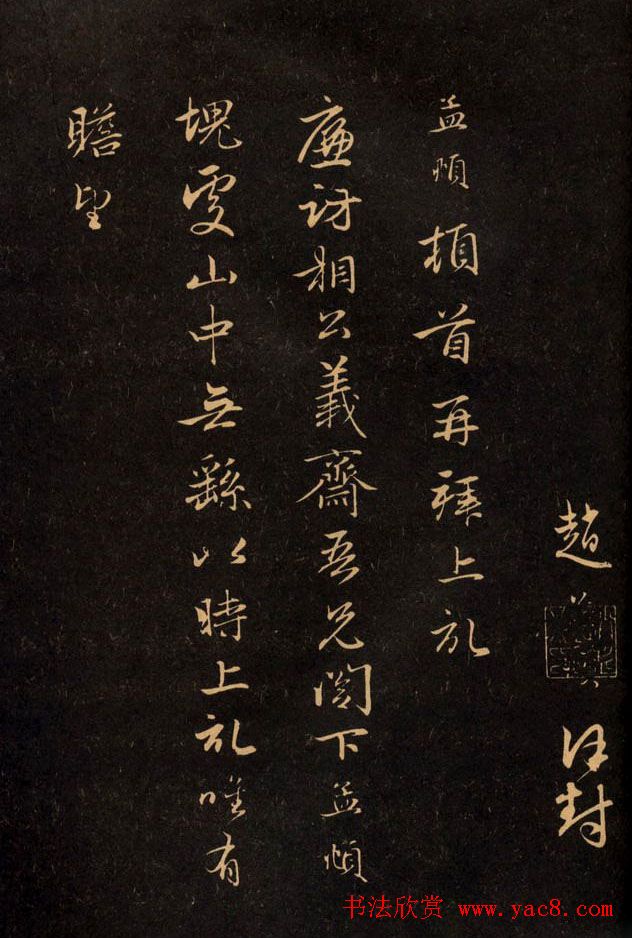 趙 謹封
孟頫頓首再拜上記
廉訪相公義齋吾兄閣下孟頫
塊處山中無繇以時上記唯有
瞻望
书法欣赏 www.yac8.com